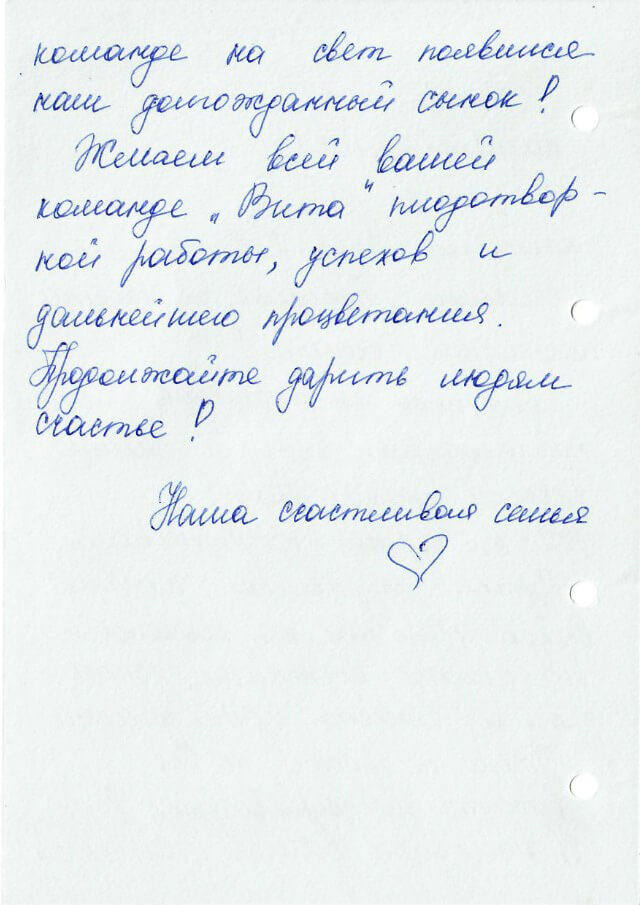 команде на свет появился
наш долгожданный сынок!
Желаем всей вашей
команде „Вита" плодотвор-
ной работы, успехов и
дальнейшего процветания.
Продолжайте дарить людям
счастье!
Наша счастливая семья